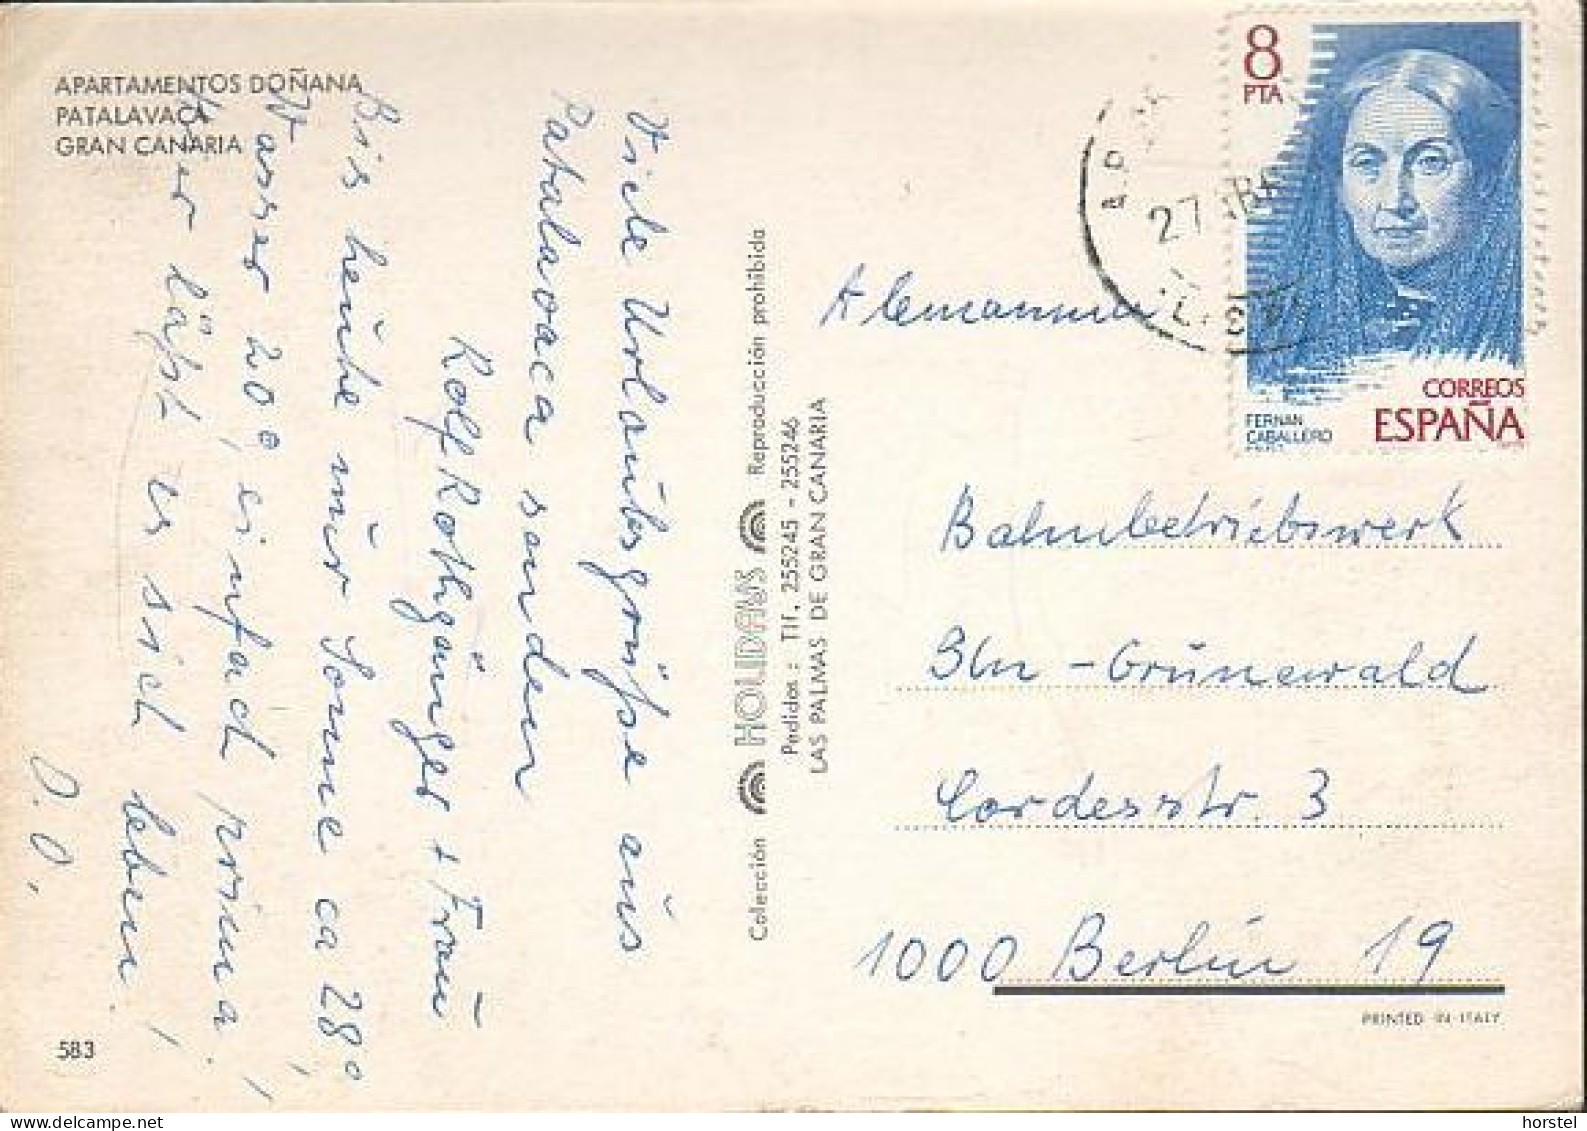 APARTAMENTOS DOÑANA
PATALAVACA
GRAN CANARIA
Viele Urlaubsgrüße aus
Patalavaca senden
Rolf Rothgänger + Frau
Bis heute nur Sonne ca 28°,
Wasser 20°, einfach prima!
Hier läßt es sich leben!
D. O.
583
Colección HOLIDAYS Reproducción prohibida
Pedidos: Tlf. 255245 - 255246
LAS PALMAS DE GRAN CANARIA
8
PTA
CORREOS
ESPAÑA
FERNAN
CABALLERO
27 ABR
Alemannia
Bahnbetriebswerk
Bln - Grünewald
Cordesstr. 3
1000 Berlin 19
PRINTED IN ITALY
horstel